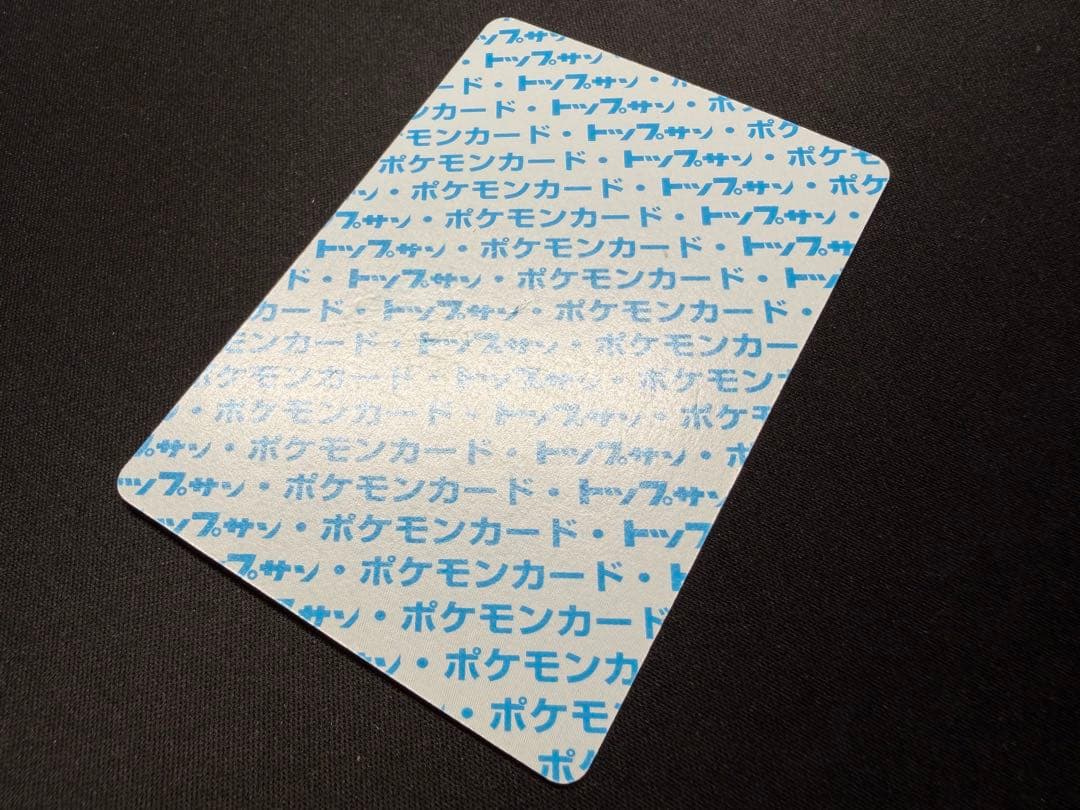 ップサン
・トップサン
ード・トップサン・
カード・トップサン・ポ
モンカード・トップサン・ポク
ポケモンカード・トップサン・ポケモ
ン・ポケモンカード・トップサン・ポケ
プサン・ポケモンカード・トップサン・
トップサン・ポケモンカード・トップサ
ド・トップサン・ポケモンカード・トッ
カード・トップサン・ポケモンカード・
モンカード・トップサン・ポケモンカー
ポケモンカード・トップサン・ポケモン
・ポケモンカード・トップサン・ポケモ
プサン・ポケモンカード・トップサン・ポ
ップサン・ポケモンカード・トップサン
ップサン・ポケモンカード・トップ
プサン・ポケモンカード・ト
サン・ポケモンカード
ン・ポケモンカ
・ポケモ
ポケ